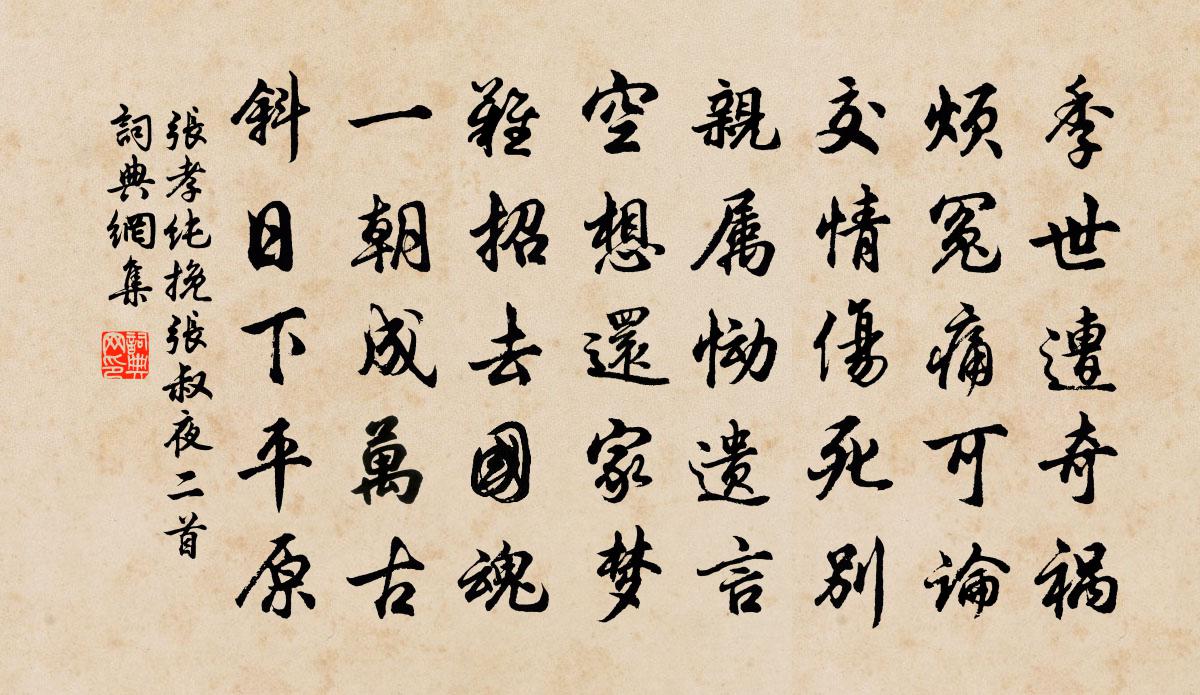 季世遭奇禍
煩冤痛可論
交情傷死別
親属慟遺言
空想還家梦
難招去國魂
一朝成萬古
斜日下平原
張孝純挽張叔夜二首
詞典網集
詞典
网印